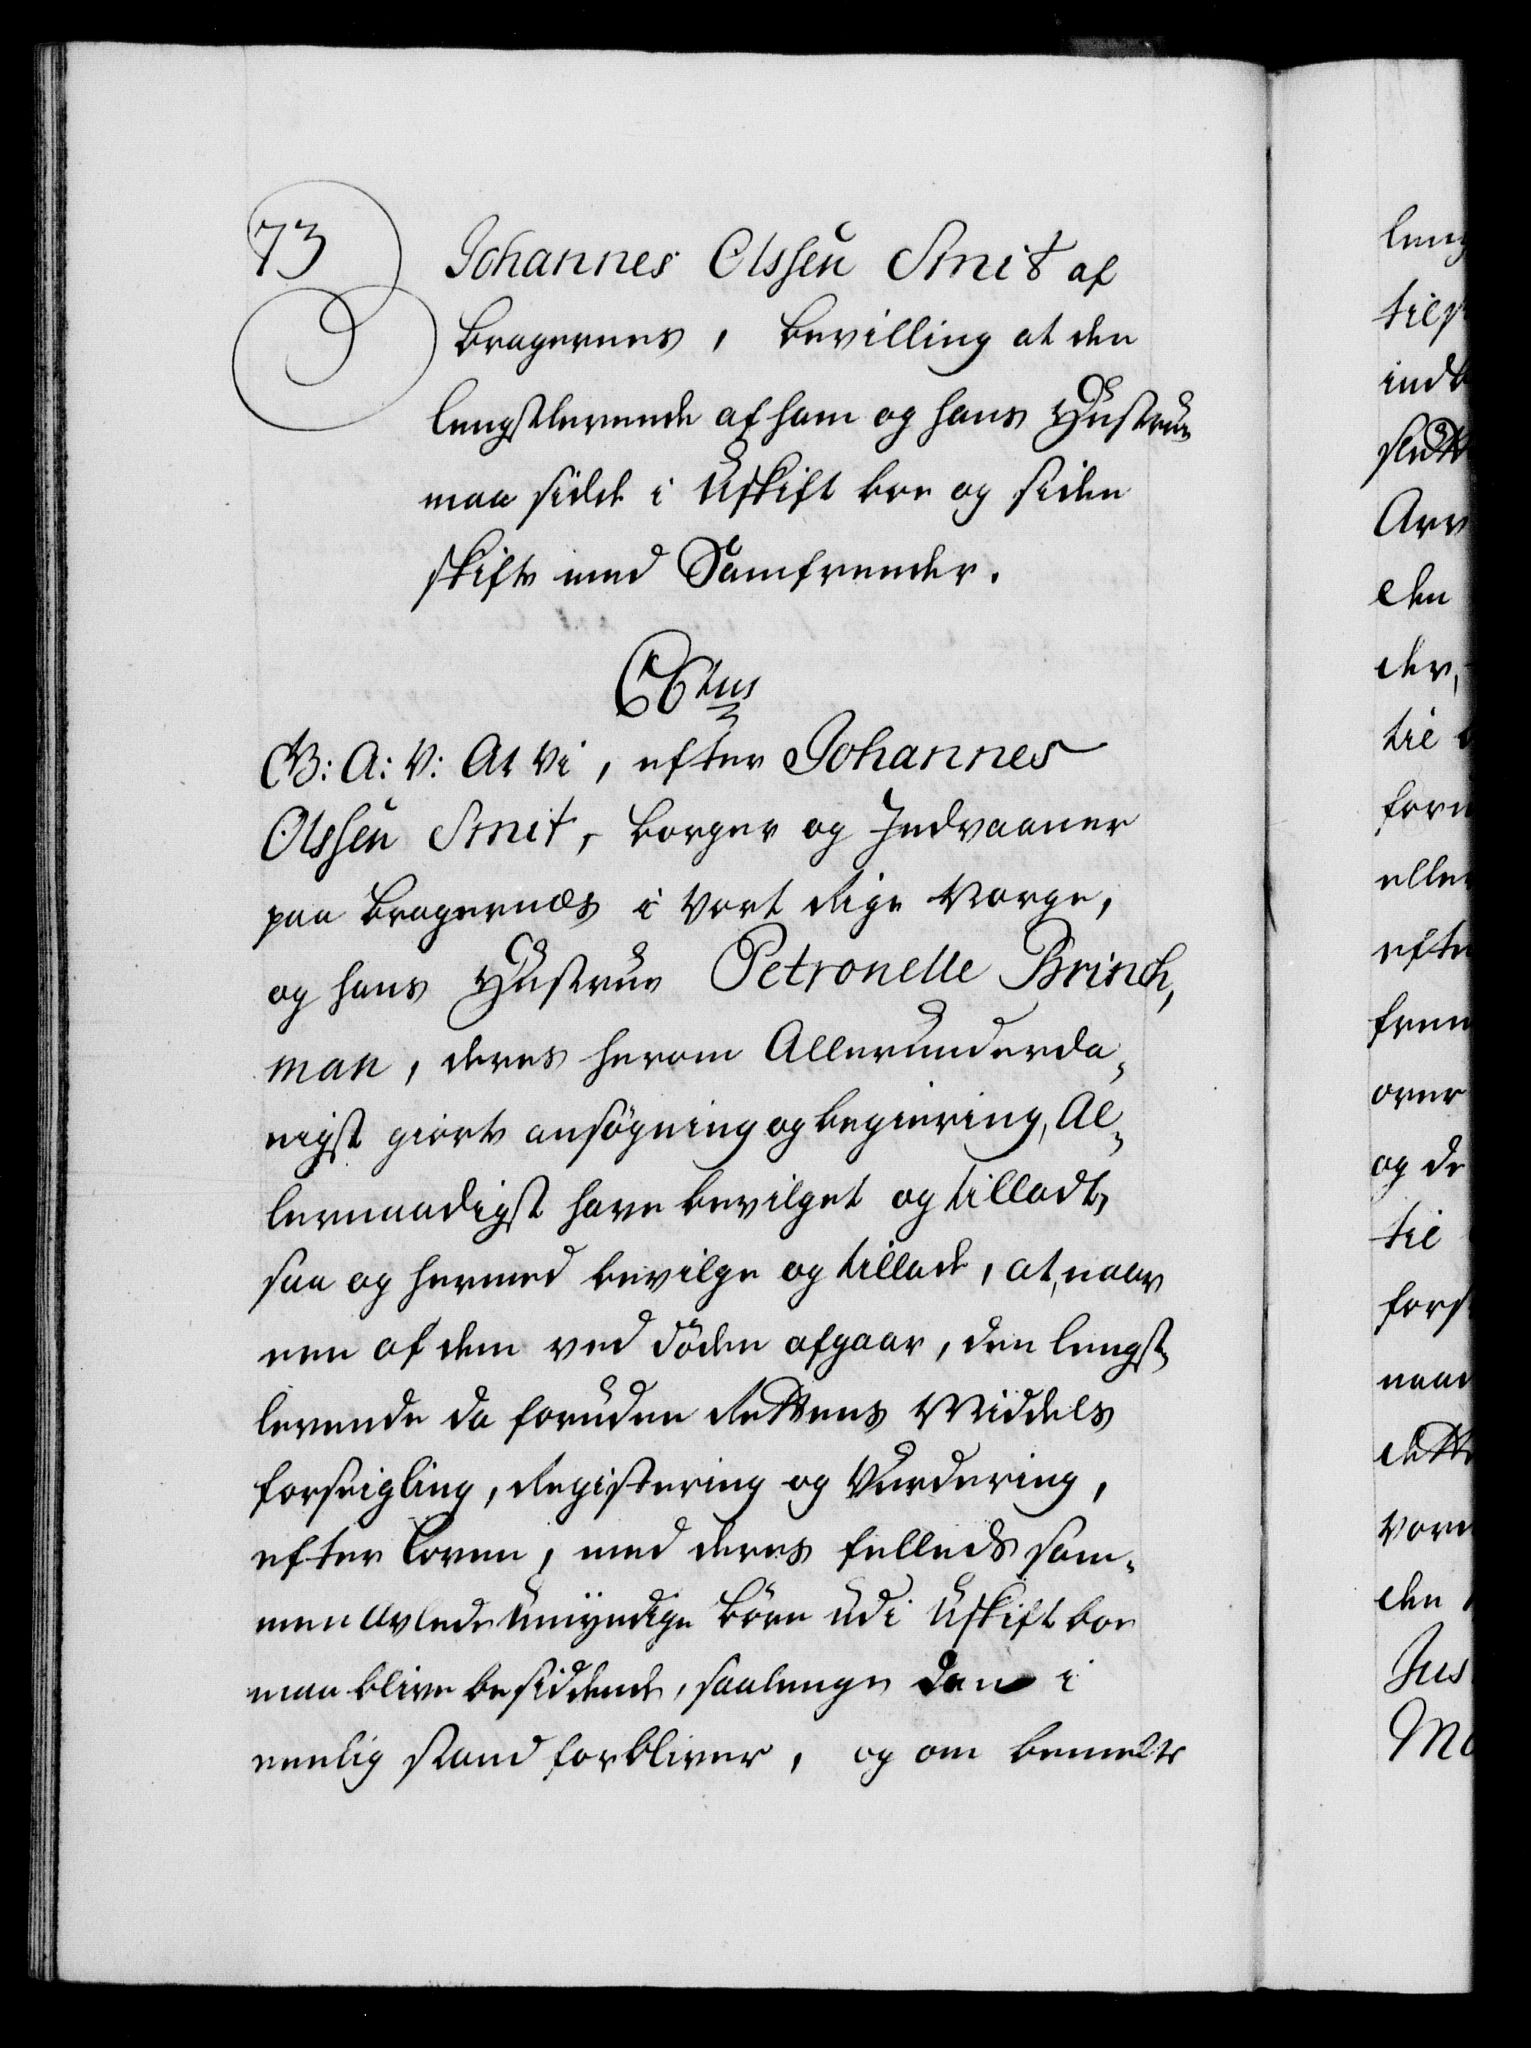 73
Johannes Olssen Smit af
Bragernes, Bevilling at den
lengstlevende af ham og hans Hustrue
maa sidde i Uskift boe og siden
skifte med Samfrender.
C 6tus
G: A: V: At Vi, efter Johannes
Olssen Smit, Borger og Indvaaner
paa Bragernæs i Vort Rige Norge,
og hans Hustrue Petronelle Brinch,
man, deres herom Allerunderda,
nigst giorte ansøgning og begiering, Al,
lernaadigst have bevilget og tilladt,
saa og hermed bevilge og tillade, at, naar
een af dem ved døden afgaar, den lengst,
levende da foruden Rettens Middels
forseigling, Registering og Vurdering,
efter Loven, med deres felleds sam,
men avlede Umyndige Børn udi Uskift boe
maa blive besiddende, saalenge den i
eenlig stand forbliver, og om bemelte
leng
tilp
indb
slutt
Arv
den
der,
til
forn
eller
efte
fren
over
og de
til
fors
naad
Rette
Vore
den
Jus
Mo